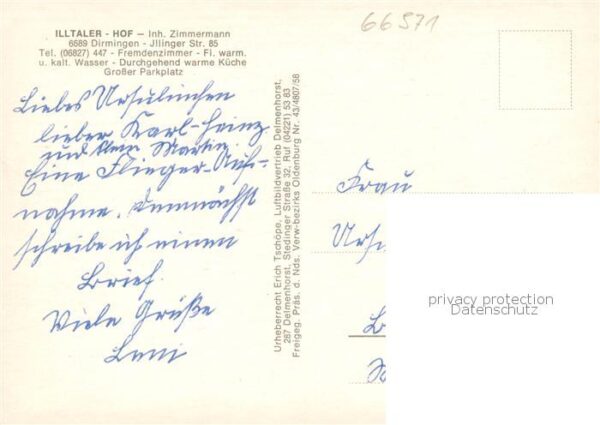 ILLTALER - HOF – Inh. Zimmermann
6689 Dirmingen - Jllinger Str. 85
Tel. (06827) 447 - Fremdenzimmer - Fl. warm.
u. kalt. Wasser - Durchgehend warme Küche
Großer Parkplatz
66571
Liebes Ursulinchen
lieber Karl-Heinz
und klein Martin.
Eine Flieger-Auf-
nahme. Demnächst
schreibe ich einen
Brief.
Viele Grüße
Leni
Urheberrecht Erich Tschöpe, Luftbildvertrieb Delmenhorst,
287 Delmenhorst, Stedinger Straße 32, Ruf (04221) 53 83
Freigeg. Präs. d. Nds. Verw-bezirks Oldenburg Nr. 43/4607/58
Frau
Urs
privacy protection
Datenschutz